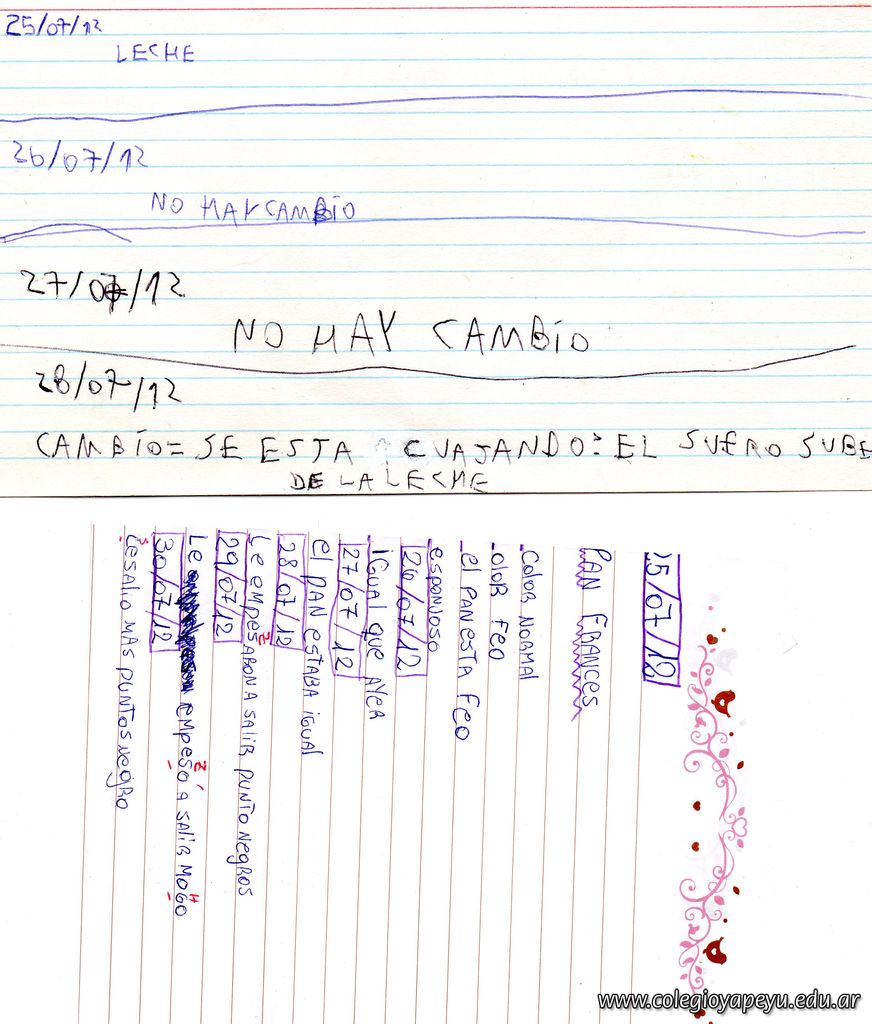 25/07/12
LECHE
26/07/12
NO HAY CAMBÍO
27/07/12
NO HAY CAMBÍO
28/07/12
CAMBÍO= SE ESTA CUAJANDO: EL SUERO SUBE
DE LA LECHE
25/07/12
PAN FRANCES
-COLOR NORMAL
-OLOR FEO
-el PAN ESTA FEO
-esponjoso
26/07/12
-IGUAL QUE AYER
27/07/12
el PAN ESTABA iGUAl
28/07/12
Le empesABON A SALIR PUNTO NegROS
z
29/07/12
Le empeso A SALIR MOGO
z
H
30/07/12
LeSALIO MAS PUNTOS NegRO
www.colegioyapeyu.edu.ar